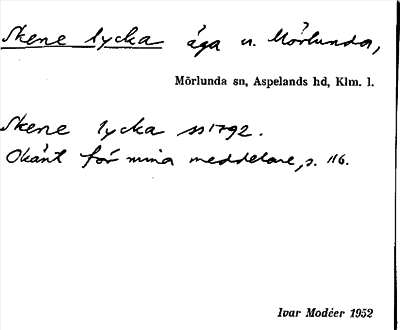 Skene lycka äga u. Mörlunda,
Mörlunda sn, Aspelands hd, Klm. l.
Skene lycka ss 1792.
Okänt för mina meddelare, s. 116.
Ivar Modéer 1952